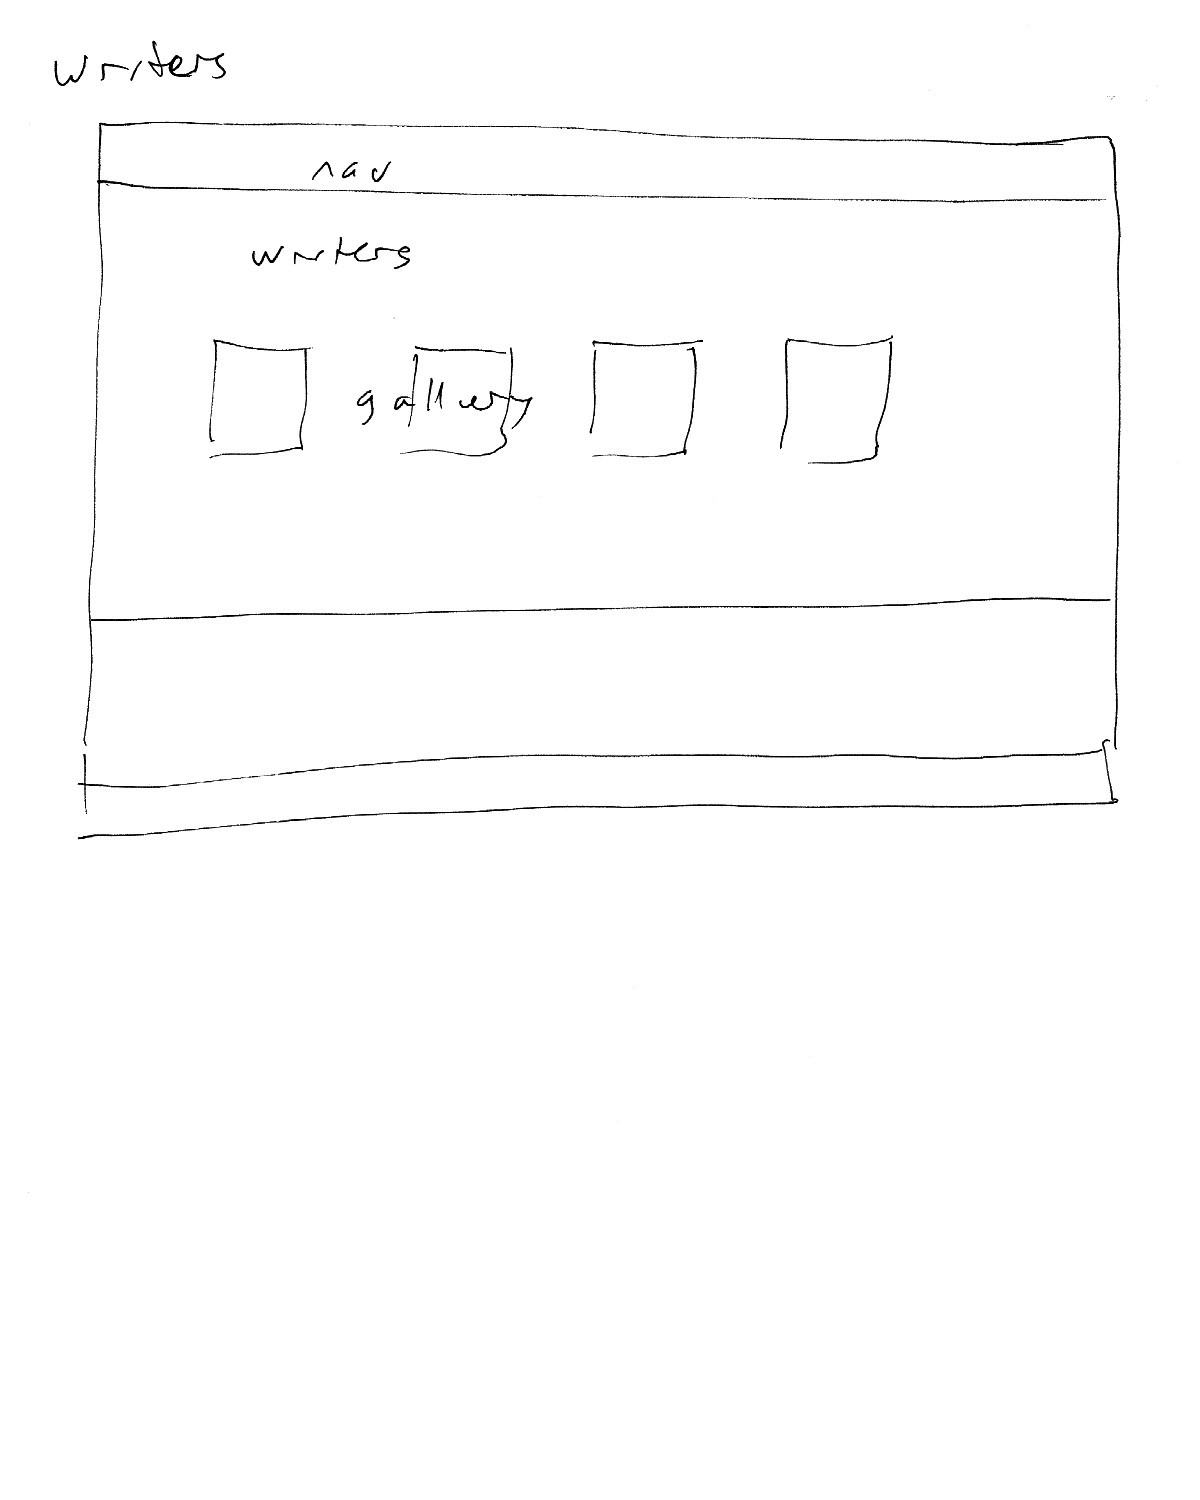 writers
nav
writers
gallery